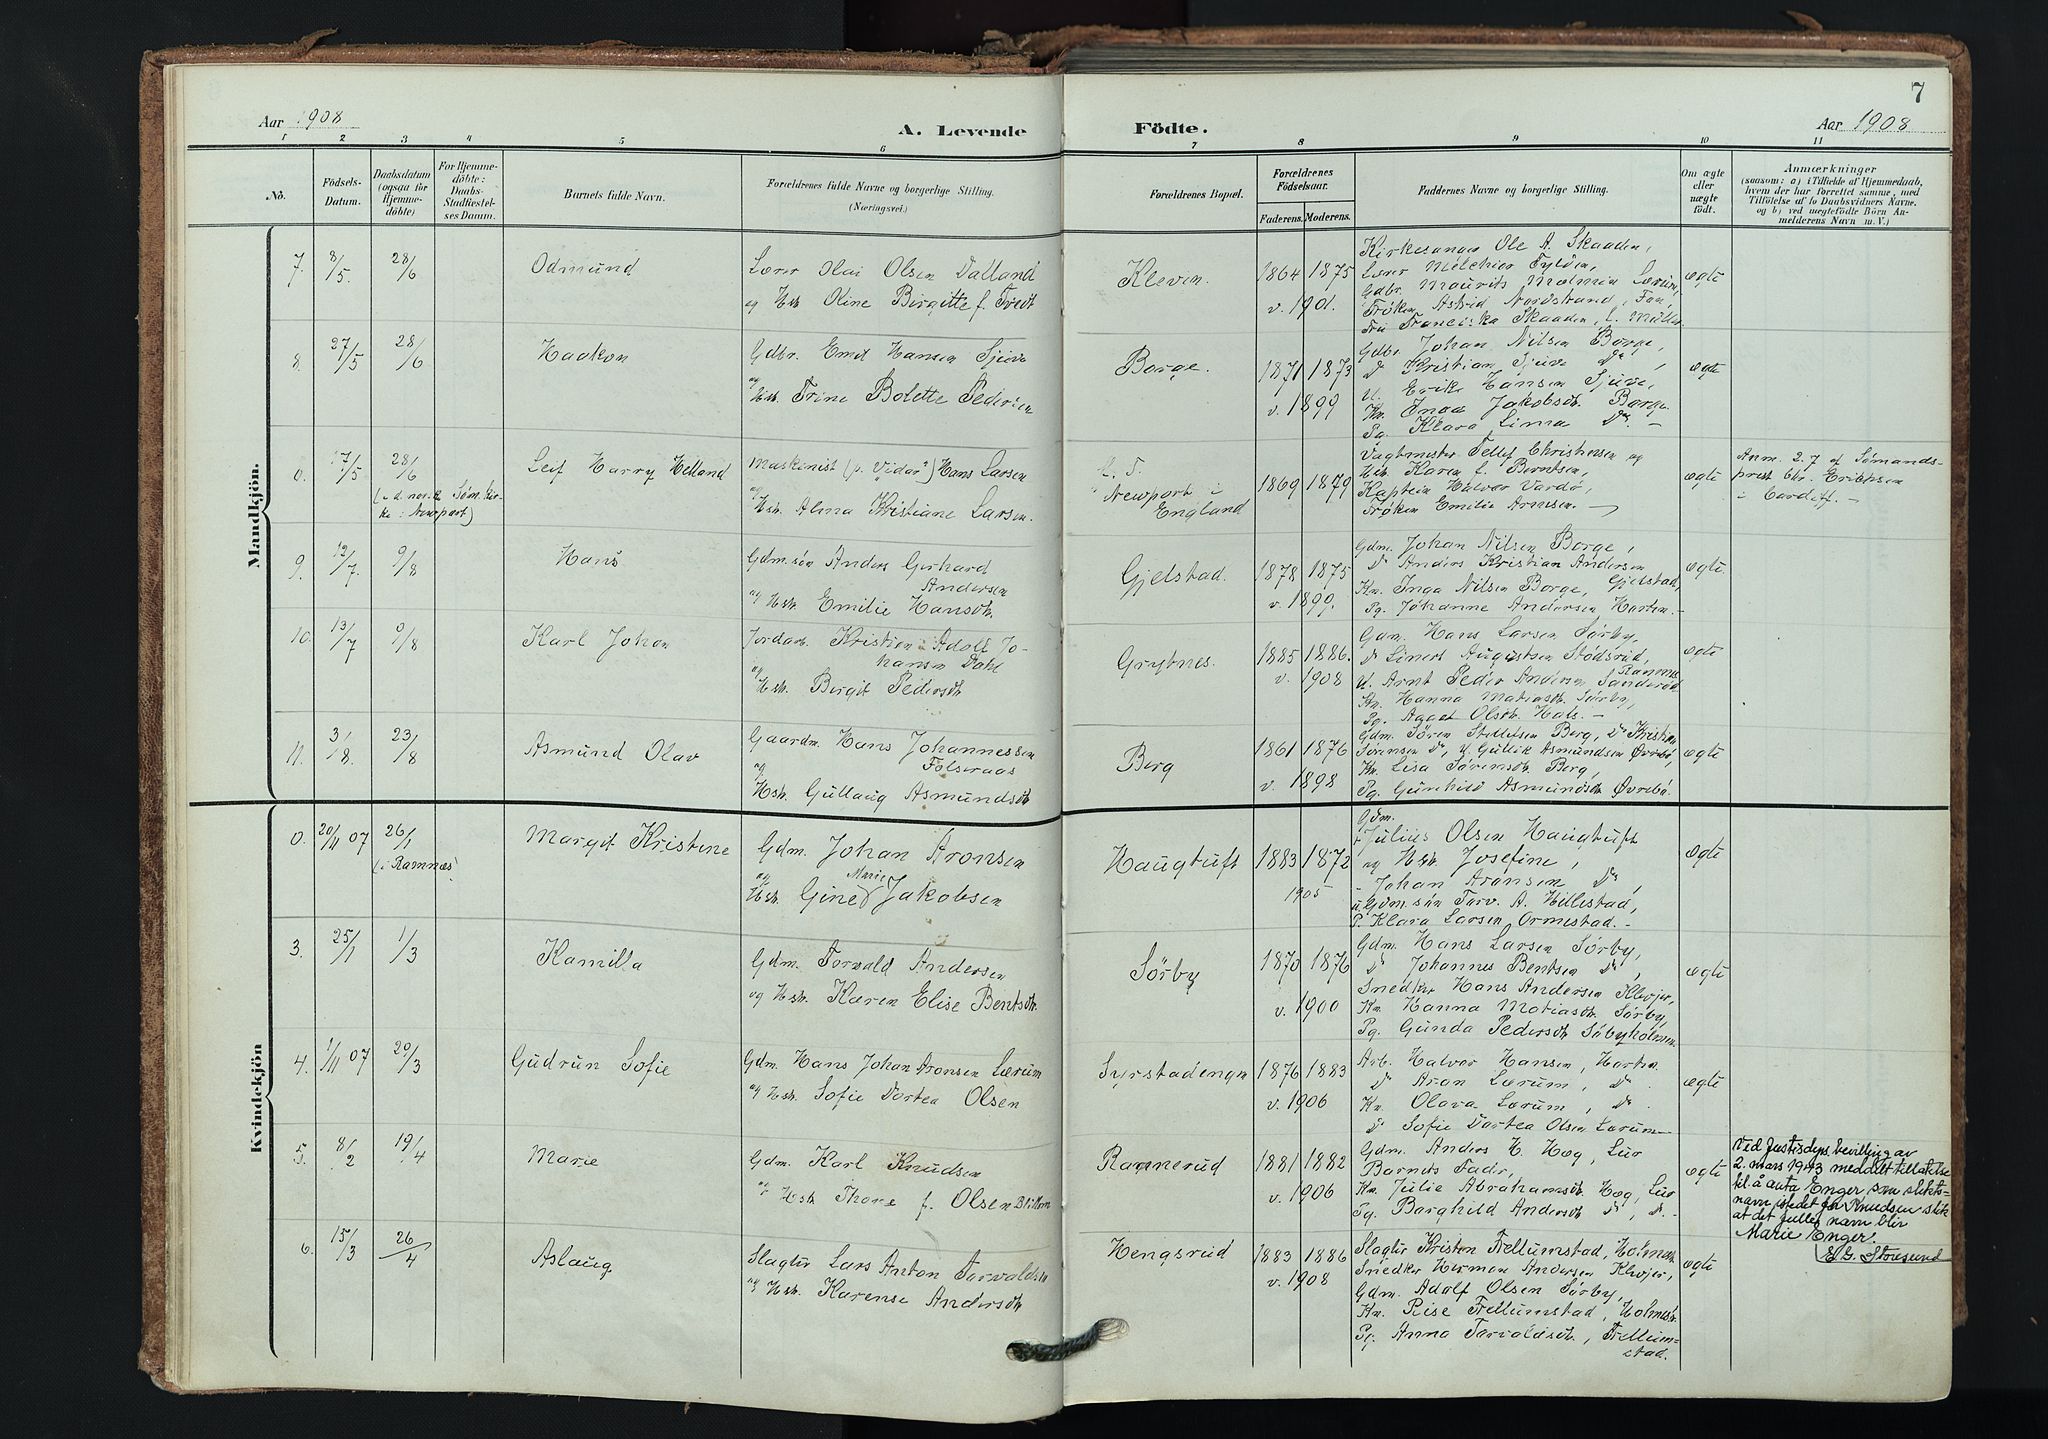 7
Aar 1908
A. Levende
Födte.
Aar 1908
1 2 3 4 5 6 7 8 9 10 11
No.
Födsels-
Datum.
Daabsdatum
(ogsaa för
Hjemme-
döbte)
For Hjemme-
döbte:
Daabs-
Stadfæstel-
ses Datum.
Barnets fulde Navn.
Forældrenes fulde Navne og borgerlige Stilling.
(Næringsvei.)
Forældrenes Bopæl.
Forældrenes
Födselsaar.
Faderens. Moderens.
Faddernes Navne og borgerlige Stilling.
Om ægte
eller
uægte
födt.
Anmærkninger
(saasom: a) i Tilfælde af Hjemmedaab,
hvem der har forrettet samme, med
Tilföielse af to Daabsvidners Navne.
og b) ved uægtefödte Börn An-
melderens Navn m. V.)
Mandkjön.
7. 8/5. 28/6 Odmund
Lærer Olai Olsen Valland
og Hst. Oline Birgitte f. Tredt
Kleven. 1864 1875
v. 1901.
Kirkesanger Ole A. Skaaden,
Lærer Melchior Tylden,
Gdbr. Maurits Molmen Lærum,
Frøken Astrid Nordstrand, Fon,
Fru Franciska Skaaden, f. Møller
ægte
8. 27/5 28/6 Haakon
Gdbr. Emil Hansen Sjuve
og
Hst. Trine Bolette Pedersen
Borge. 1871 1873
v. 1899
Gdbr. Johan Nilsen Borge,
Do Kristian Sjuve Do,
U. Erik Hansen Sjuve,
Kn. Inga Jakobsdt. Borge
Pg. Klara Linna Do. –
ægte
0. 17/5 28/6
(i d. norske Sømkir-
ke i Newport)
Leif Harry Helland
Maskinist (p. "Vidar") Hans Larsen
og
Hst. Alma Kristiane Larsen.
Newport i
England
1869 1879
Vagtmester Tellef Christensen og
Hst. Karen f. Berntsen,
Kaptein Halvor Vardø,
Frøken Emilie Arnesen. –
ægte
Anm. 2.7 af Sømands-
prest Chr. Eriksen
i Cardiff. –
9. 12/7. 9/8 Hans
Gdm.søn Anders Gerhard
Andersen
og Hst. Emilie Hansdt.
Gjelstad. 1878 1875
v. 1899.
Gdm. Johan Nilsen Borge,
Do Anders Kristian Andersen
Gjelstad,
Kn. Inga Nilsen Borge,
Pg. Johanne Andersen Horten. –
ægte.
10. 13/7 9/8 Karl Johan
Jordarb. Kristian Adolf Jo-
hansen Dahl
og
Hst. Bergit Pedersdt.
Grytnes. 1885 1886.
v. 1908
Gdm. Hans Larsen Sørby,
Do Linert Augustsen Stødsrød,
Ramnes
U. Arnt Peder Andersen Sanderød
Kn. Hanna Matiasdt. Sørby,
Pg. Agget Olsdt. Hals. –
ægte
11. 3/8. 23/8 Asmund Olav
Gaardm. Hans Johannessen
Følseraas
og
Hst. Gullaug Asmundsdt.
Berg 1861 1876
v. 1898
Gdm. Søren Stellefsen Berg, Do Kristian
Sørensen Do, U. Gullik Asmundsen Øvrebø,
Kn. Lisa Sørensdt. Berg,
Pg. Gunhild Asmundsdt. Øvrebø.
ægte
Kvindekjön
0. 20/11 07 26/1
(i Ramnes)
Margit Kristine
Gdm. Johan Aronsen
og Marie
Hst. Gine Jakobsen
Haugtuft 1883 1872
1905
Gdm.
Julius Olsen Haugtuft
og Hst. Josefine,
– Johan Aronsen Do,
u. Gdm.søn Torv. A. Hillestad,
P. Klara Larsen Ormestad. –
ægte
3. 25/1 1/3 Kamilla
Gdm. Torvald Andersen
og Hst. Karen Elise Bentsdt.
Sørby 1870 1876
v. 1900
Gdm. Hans Larsen Sørby,
Do Johannes Bentsen Do,
Snedker Hans Andersen Klevjer,
Kn. Hanna Matiasdt. Sørby,
Pg. Gunda Pedersdt. Søbyholmen.
ægte
4. 1/11 07 20/3 Gudrun Sofie
Gdm. Hans Johan Aronsen Lærum
og Hst. Sofie Dortea Olsen
Syrstadengen 1876 1883
v. 1906
Arb. Halvor Hansen, Horten
Do Aron Lærum, Do.
Kn. Olava Lærum, Do.
Do Sofie Dortea Olsen Lærum –
ægte
5. 8/2 19/4 Marie
Gdm. Karl Knudsen
og Hst. Thora f. Olsen
Rannerud 1881 1882
v. 1906
Gdm. Anders H. Høg, Lur
Barnets Fadr,
Kn. Julie Abrahamsdt. Høg, Lur
Pg. Borghild Andersdt. Do, Do. –
ægte
Ved Justisdeps. bevilling av
2. mars 1943 meddelt tillatelse
til å anta Enger som slekts-
navn istedet for Knudsen slik
at det fulle navn blir
Marie Enger.
E. G. Storesund
6. 15/3 26/4 Aslaug
Slagter Lars Anton Torvaldsen
og Hst. Karense Andersdt.
Hengsrud 1883 1886
v. 1908
Slagter Kristen Frellumstad, Holmestr.
Snedker Herman Andersen Klevjer,
Gdm. Adolf Olsen Sørby,
Kn. Rise Frellumstad, Holmestr.
Pg. Anna Torvaldsdt., Frellum-
stad.
ægte